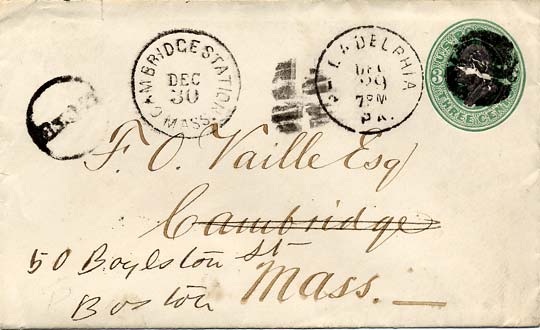 CAMBRIDGE STATION
DEC
30
MASS.
LADELPHIA
DEC
29
7 PM
PA.
U.S. PO
3
THREE CEN
F. O. Vaille Esq
Cambridge
50 Boylston St
Boston
Mass.